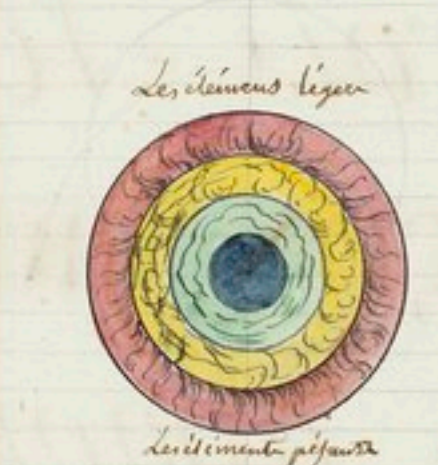 Les élémens légers
Les éléments pésants